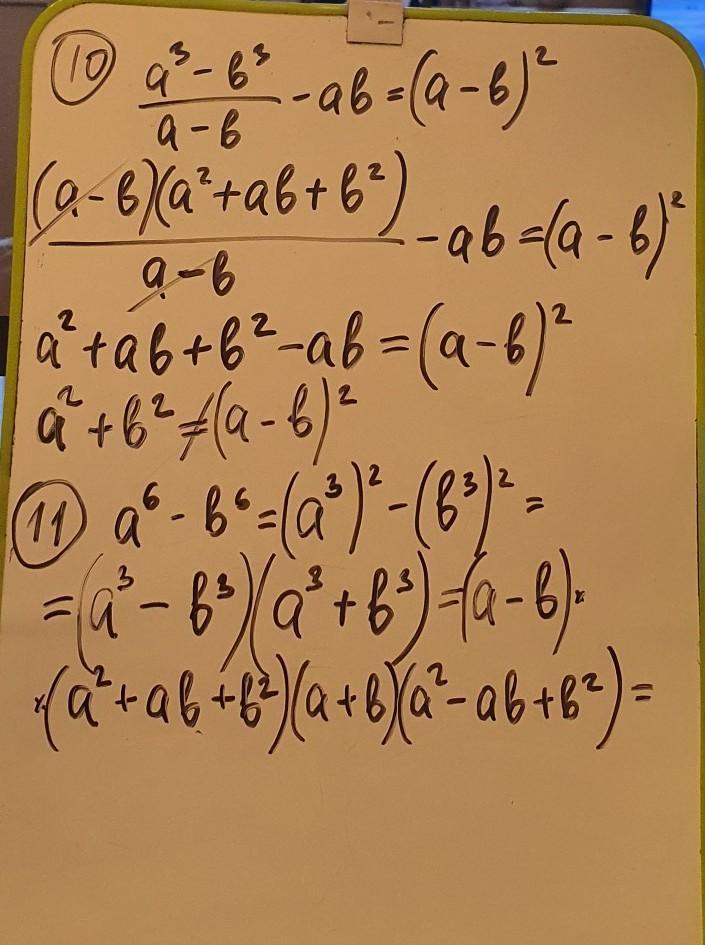 10 (a³ - b³)/(a - b) - ab = (a - b)²
((a - b)(a² + ab + b²))/(a - b) - ab = (a - b)²
a² + ab + b² - ab = (a - b)²
a² + b² ≠ (a - b)²
11 a⁶ - b⁶ = (a³)² - (b³)² =
= (a³ - b³)(a³ + b³) = (a - b)×
×(a² + ab + b²)(a + b)(a² - ab + b²) =